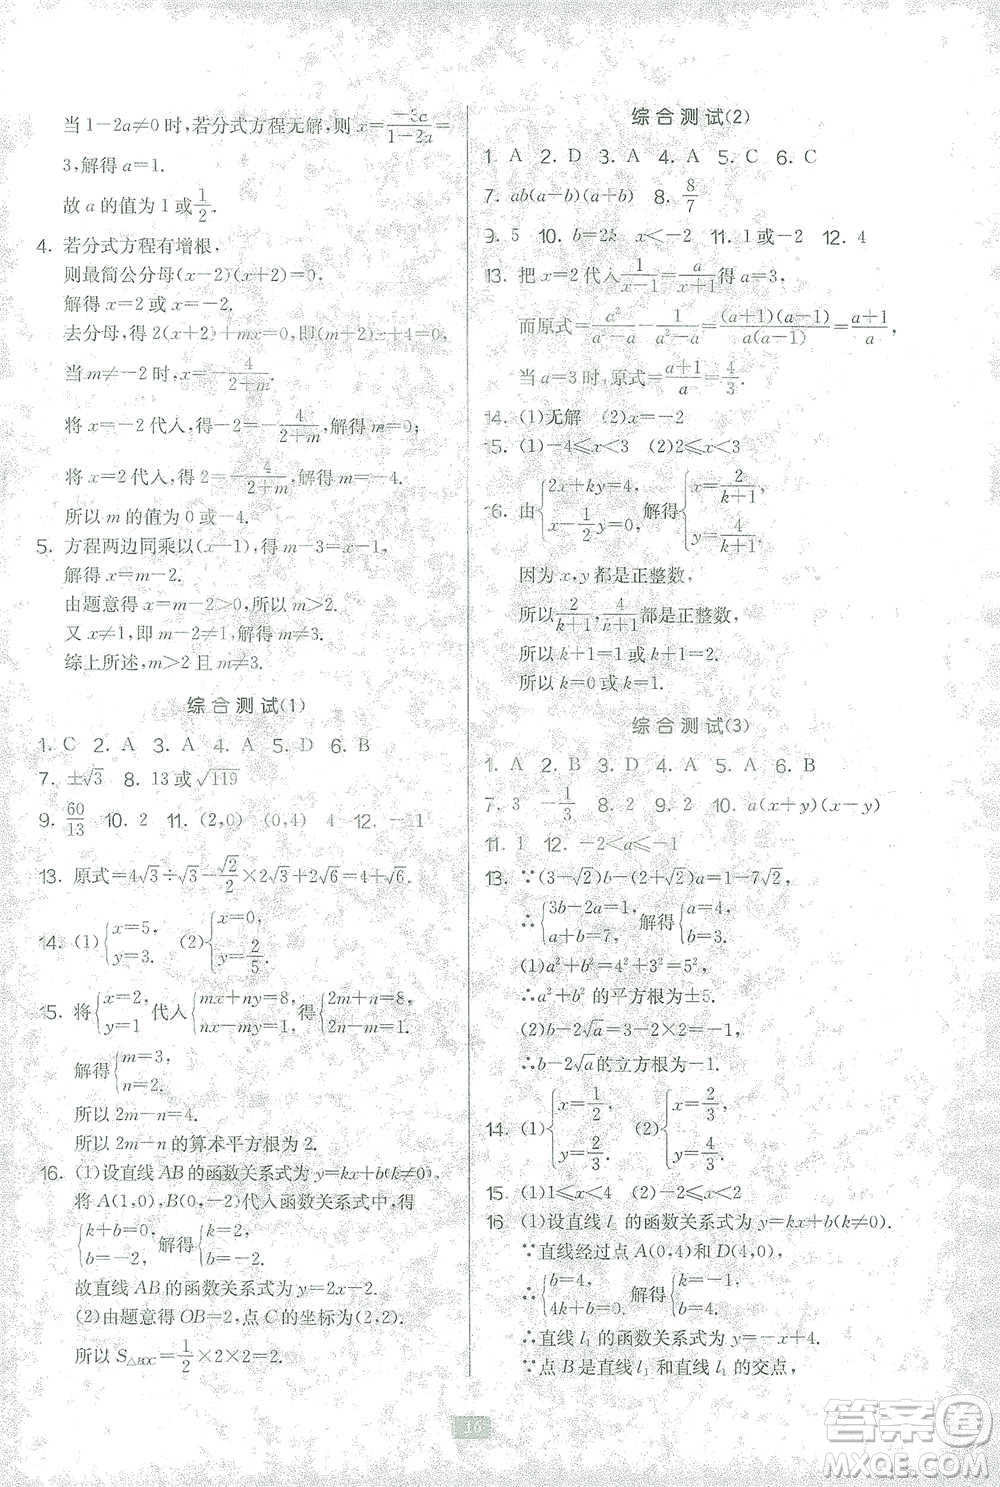 当1-2a≠0时,若分式方程无解,则x=\frac{-3a}{1-2a}=
3,解得a=1.
故a的值为1或\frac{1}{2}.
4. 若分式方程有增根,
则最简公分母(x-2)(x+2)=0,
解得x=2或x=-2.
去分母,得2(x+2)+mx=0,即(m+2)x+4=0,
当m≠-2时,x=-\frac{4}{2+m},
将x=-2代入,得-2=-\frac{4}{2+m},解得m=0;
将x=2代入,得2=-\frac{4}{2+m},解得m=-4.
所以m的值为0或-4.
5. 方程两边同乘以(x-1),得m-3=x-1,
解得x=m-2.
由题意得x=m-2>0,所以m>2.
又x≠1,即m-2≠1,解得m≠3.
综上所述,m>2且m≠3.
综合测试(1)
1. C 2. A 3. A 4. A 5. D 6. B
7. ±√3 8. 13或√119
9. \frac{60}{13} 10. 2 11. (2,0) (0,4) 4 12. -1
13. 原式=4√3÷√3-\frac{√2}{2}×2√3+2√6=4+√6.
14. (1){x=5, y=3. (2){x=2, y=\frac{2}{5}.
15. 将{x=2 y=1代入{mx+ny=8, nx-my=1,得{2m+n=8, 2n-m=1.
解得{m=3, n=2.
所以2m-n=4.
所以2m-n的算术平方根为2.
16. (1)设直线AB的函数关系式为y=kx+b(k≠0),
将A(1,0),B(0,-2)代入函数关系式中,得
{k+b=0, b=-2,解得{k=2, b=-2.
故直线AB的函数关系式为y=2x-2.
(2)由题意得OB=2,点C的坐标为(2,2).
所以S△BOC=\frac{1}{2}×2×2=2.
综合测试(2)
1. A 2. D 3. A 4. A 5. C 6. C
7. ab(a-b)(a+b) 8. \frac{8}{7}
9. 5 10. b=2k x<-2 11. 1或-2 12. 4
13. 把x=2代入\frac{1}{x-1}=\frac{a}{x+1}得a=3,
而原式=\frac{a²}{a²-a}-\frac{1}{a²-a}=\frac{(a+1)(a-1)}{a(a-1)}=\frac{a+1}{a},
当a=3时,原式=\frac{a+1}{a}=\frac{4}{3}.
14. (1)无解 (2)x=-2
15. (1)-4≤x<3 (2)2≤x<3
16. 由{2x+ky=4, x-\frac{1}{2}y=0,解得{x=\frac{2}{k+1}, y=\frac{4}{k+1}.
因为x,y都是正整数,
所以\frac{2}{k+1},\frac{4}{k+1}都是正整数,
所以k+1=1或k+1=2.
所以k=0或k=1.
综合测试(3)
1. A 2. B 3. D 4. A 5. A 6. B
7. 3 -\frac{1}{3} 8. 2 9. 2 10. a(x+y)(x-y)
11. 1 12. -2<a≤-1
13. ∵(3-√2)b-(2+√2)a=1-7√2,
∴{3b-2a=1, a+b=7,解得{a=4, b=3.
(1)a²+b²=4²+3²=5²,
∴a²+b²的平方根为±5.
(2)b-2√a=3-2×2=-1,
∴b-2√a的立方根为-1.
14. (1){x=\frac{1}{2}, (2){x=\frac{2}{3}, y=\frac{4}{3}.
15. (1)1≤x<4 (2)-2≤x<2
16. (1)设直线l₁的函数关系式为y=kx+b(k≠0).
∵直线经过点A(0,4)和D(4,0),
∴{b=4, 4k+b=0,解得{k=-1, b=4.
∴直线l₁的函数关系式为y=-x+4.
∵点B是直线l₁和直线l₁的交点,
16
答案圈
MXQE.COM